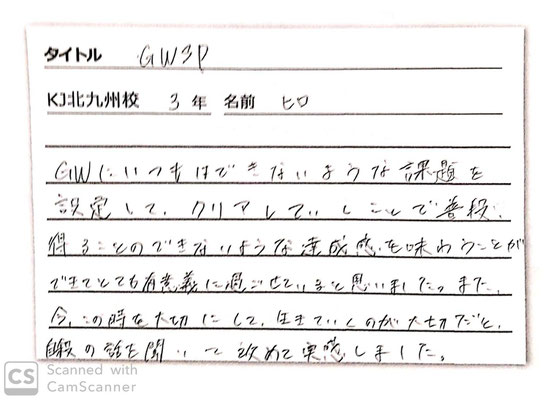 タイトル GW3P
KJ北九州校 3年 名前 ヒロ
GWにいつもはできないような課題を
設定して、クリアしていくことで普段、
得ることのできないような達成感を味わうことが
できてとても有意義に過ごせていると思いました。また、
今、この時を大切にして、生きていくのが大切だと、
自殺の話を聞いて改めて実感しました。
CS Scanned with
CamScanner